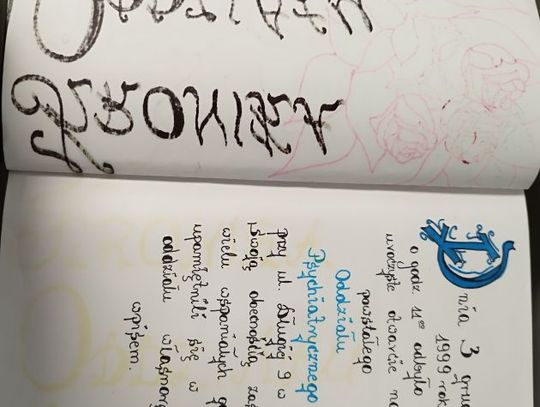 KRONIKA
Dnia 3 gru
1999 rok
o godz. 11⁰⁰ odbyło
uroczyste otwarcie no
powstałego
Oddziału
Psychiatrycznego
przy ul. Długiej 9 w
Swoją obecnością zas
wielu wspaniałych g
upamiętnili się w
oddziału własnor
wpisem.